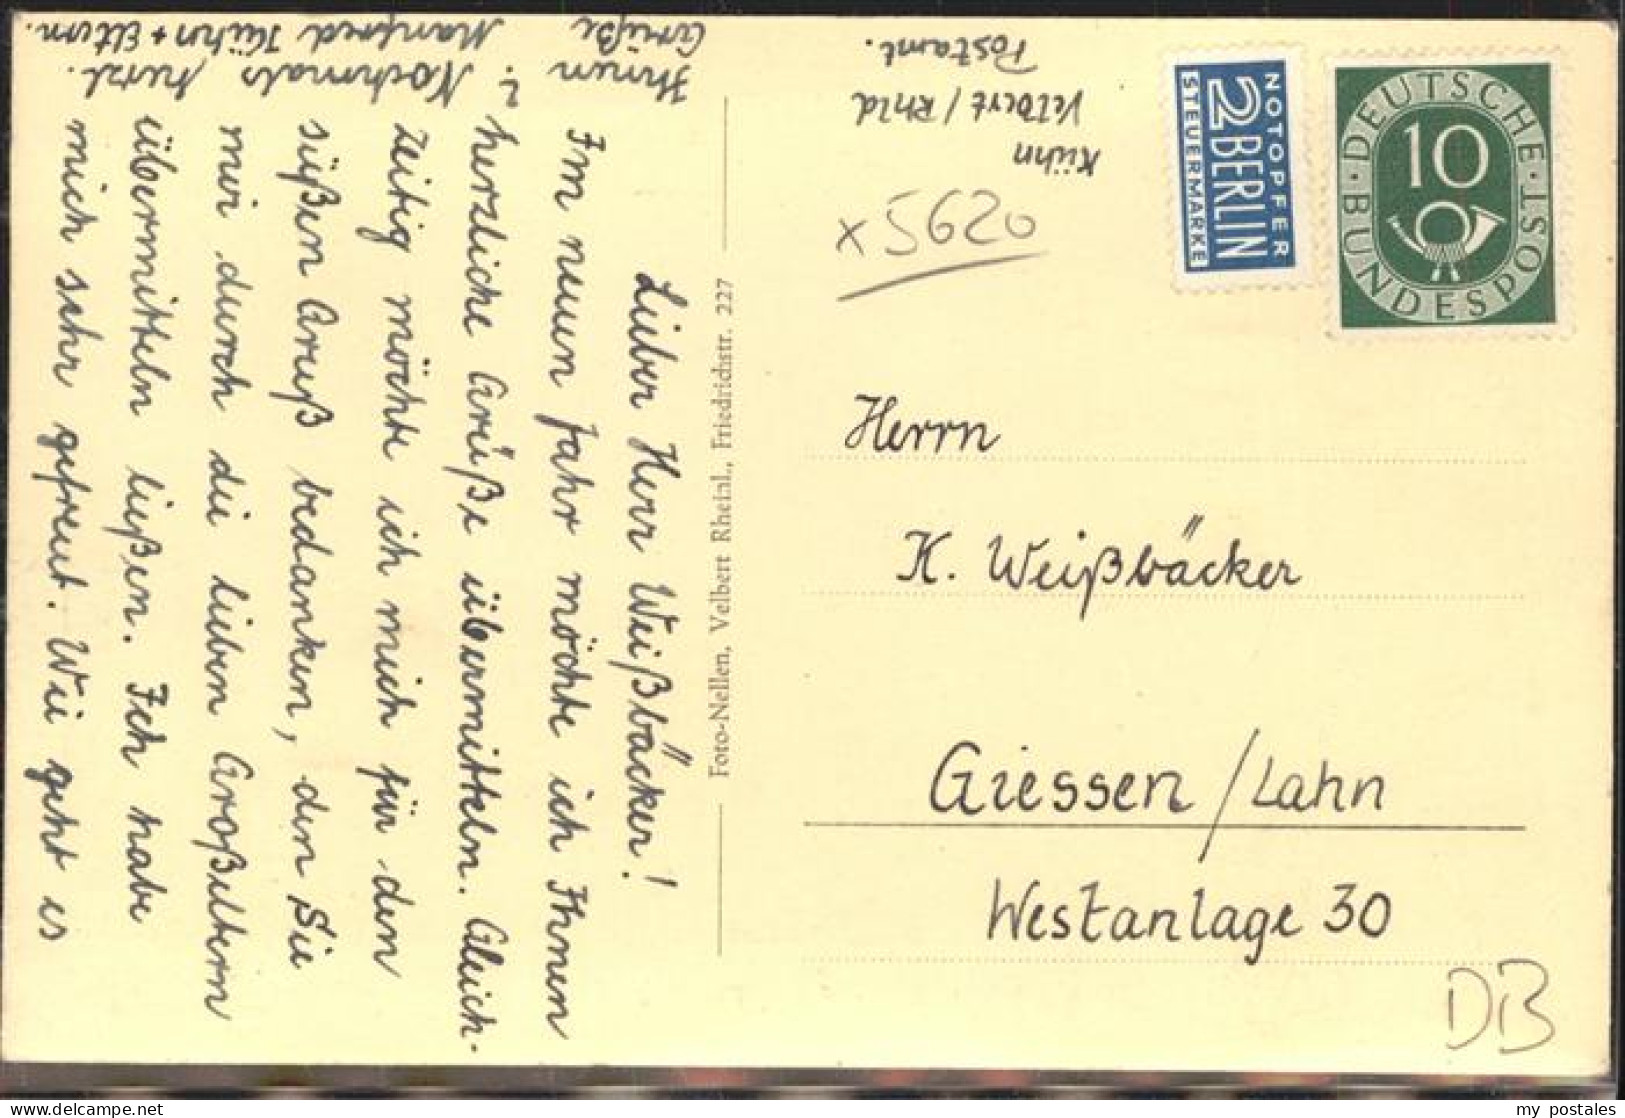 Lieber Herr Weißbäcker!
Im neuen Jahr möchte ich Ihnen
herzliche Grüße übermitteln. Gleich-
zeitig möchte ich mich für den
süßen Gruß bedanken, den Sie
mir durch die lieben Großeltern
übermitteln ließen. Ich habe
mich sehr gefreut. Wie geht es
Ihnen ? Nochmals herzl.
Grüße Manfred Kühn + Eltern.
Foto-Nellen, Velbert Rheinl., Friedrichstr. 227
Kühn
Velbert / Rhld
Postamt.
x 5620
NOTOPFER
2 BERLIN
STEUERMARKE
DEUTSCHE · BUNDESPOST ·
10
Herrn
K. Weißbäcker
Giessen / Lahn
Westanlage 30
DB
my postales